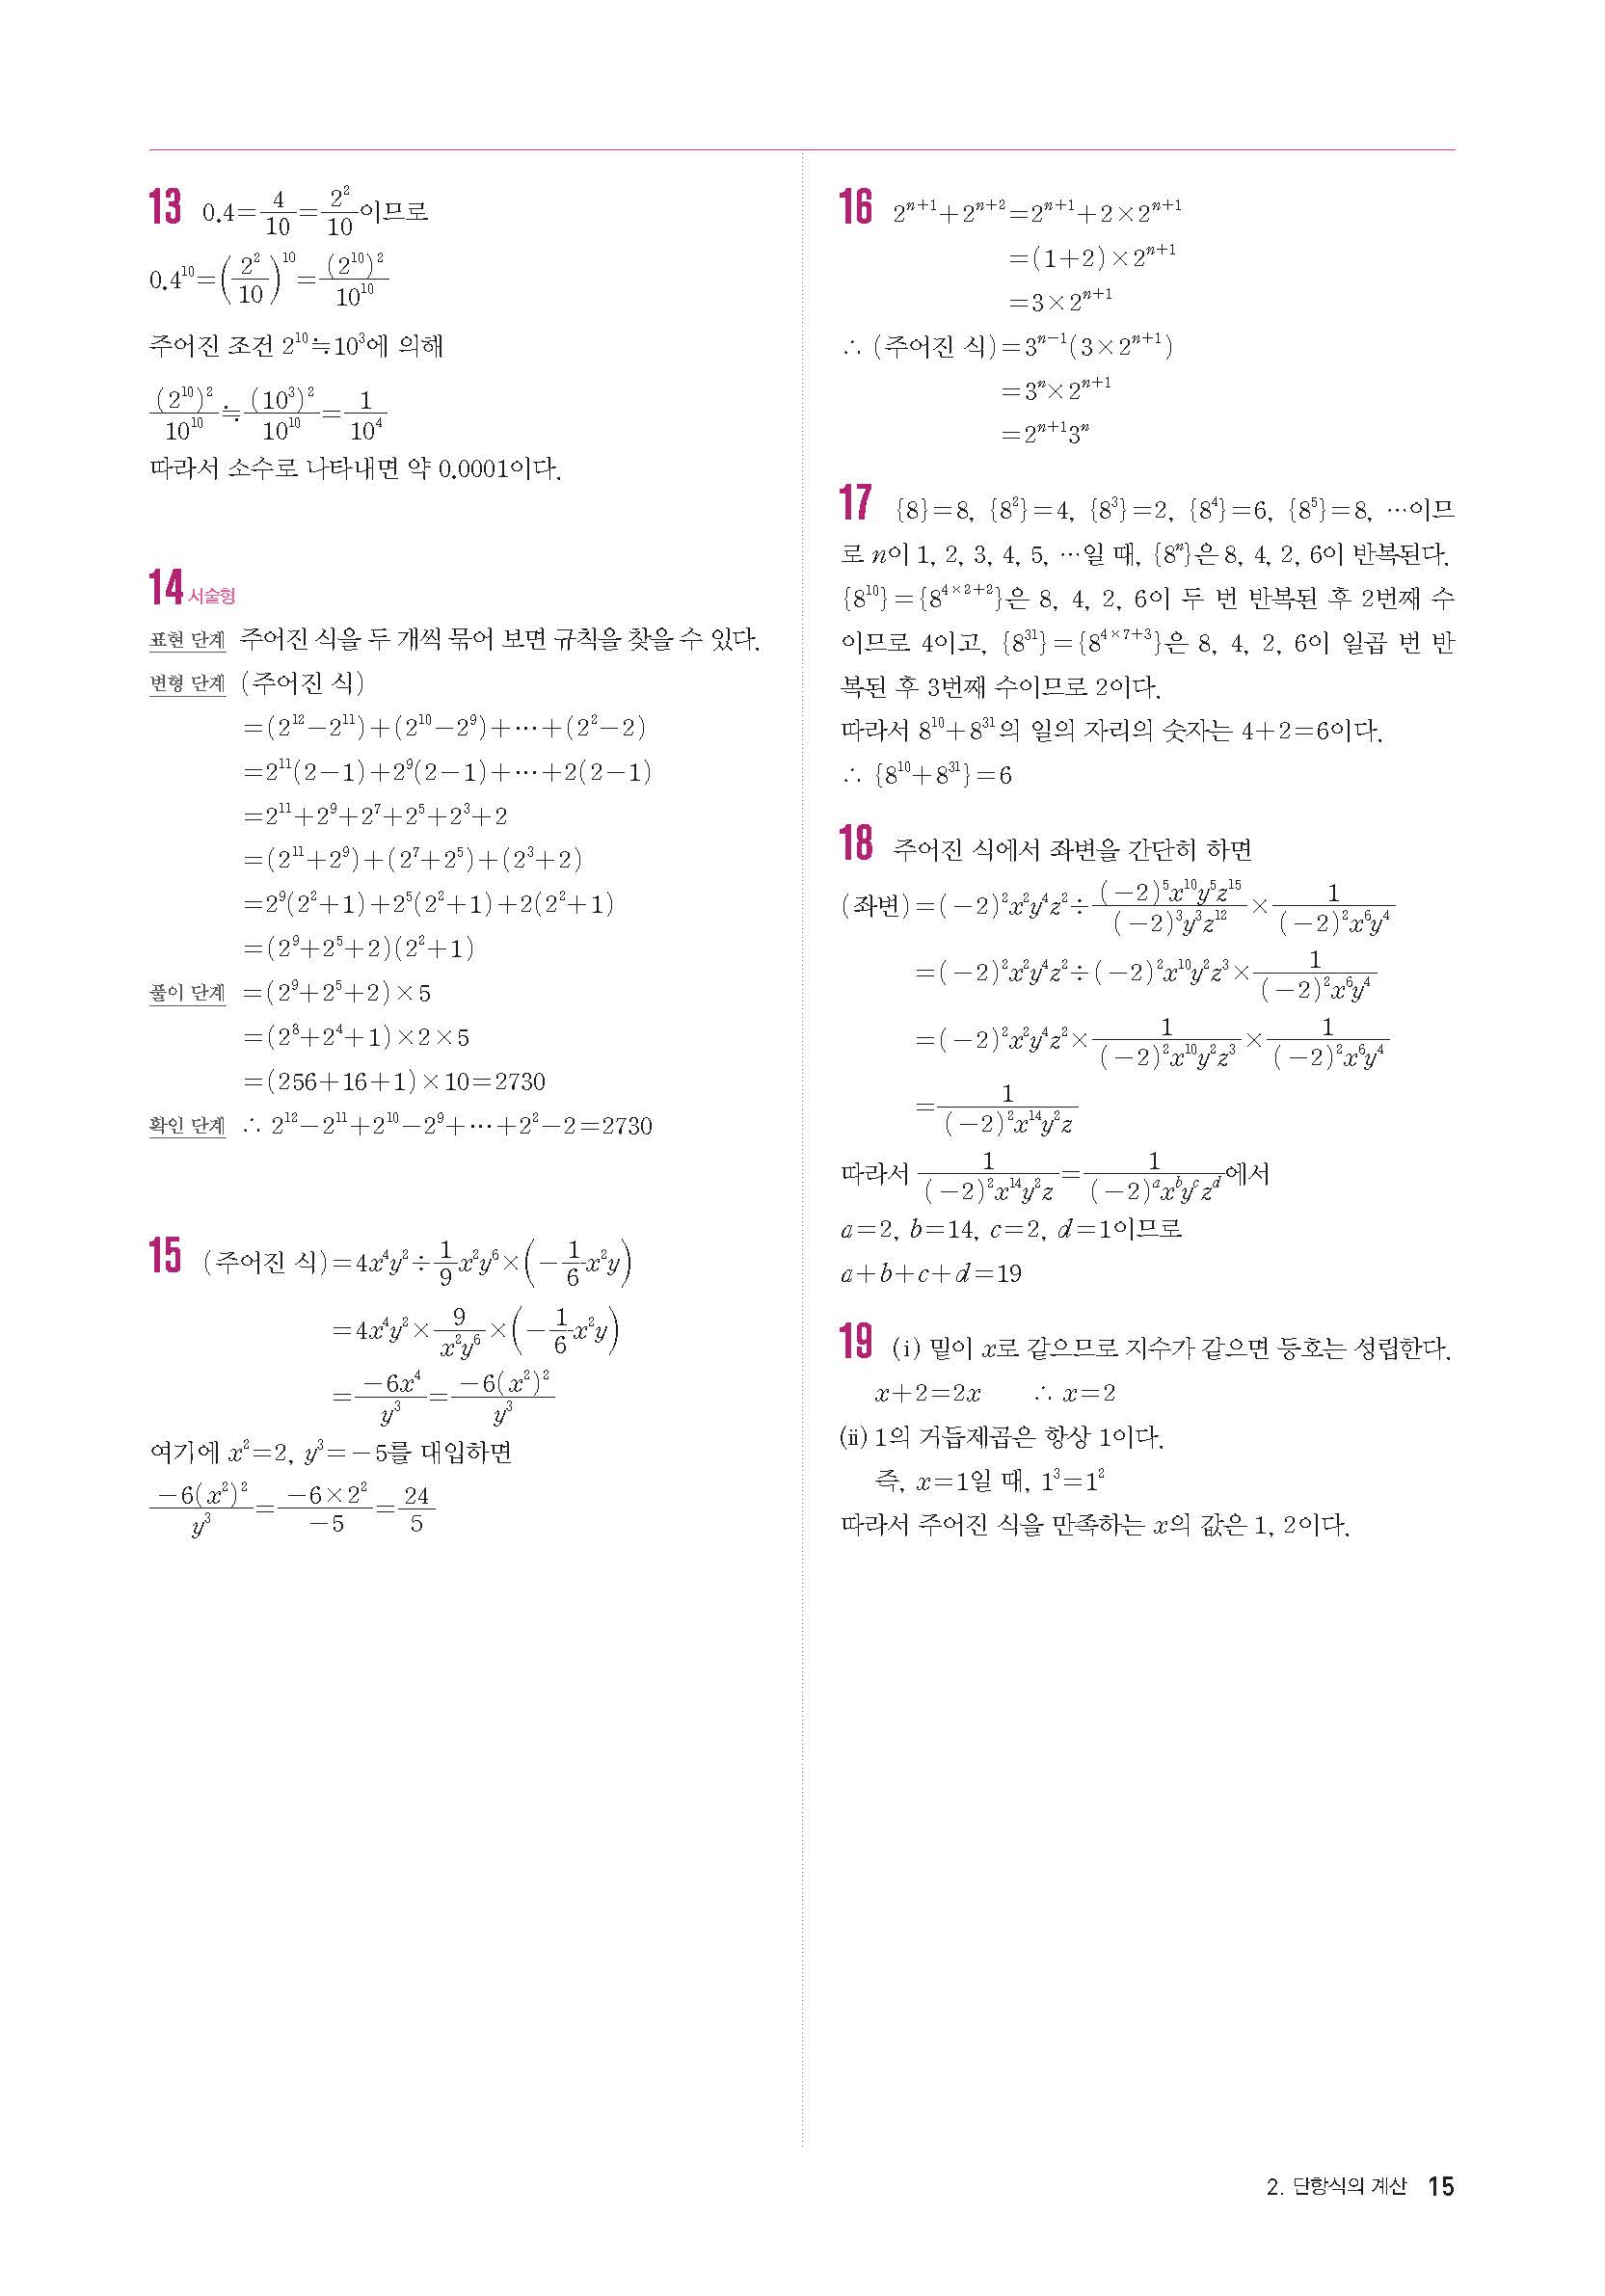 13 0.4=4/10=2²/10이므로
0.4¹⁰=(2²/10)¹⁰=(2¹⁰)²/10¹⁰
주어진 조건 2¹⁰≒10³에 의해
(2¹⁰)²/10¹⁰≒(10³)²/10¹⁰=1/10⁴
따라서 소수로 나타내면 약 0.0001이다.
14 서술형
표현 단계 주어진 식을 두 개씩 묶어 보면 규칙을 찾을 수 있다.
변형 단계 (주어진 식)
=(2¹²-2¹¹)+(2¹⁰-2⁹)+⋯+(2²-2)
=2¹¹(2-1)+2⁹(2-1)+⋯+2(2-1)
=2¹¹+2⁹+2⁷+2⁵+2³+2
=(2¹¹+2⁹)+(2⁷+2⁵)+(2³+2)
=2⁹(2²+1)+2⁵(2²+1)+2(2²+1)
=(2⁹+2⁵+2)(2²+1)
풀이 단계 =(2⁹+2⁵+2)×5
=(2⁸+2⁴+1)×2×5
=(256+16+1)×10=2730
확인 단계 ∴ 2¹²-2¹¹+2¹⁰-2⁹+⋯+2²-2=2730
15 (주어진 식)=4x⁴y²÷1/9x²y⁶×(-1/6x²y)
=4x⁴y²×9/x²y⁶×(-1/6x²y)
=-6x⁴/y³=-6(x²)²/y³
여기에 x²=2, y³=-5를 대입하면
-6(x²)²/y³=-6×2²/-5=24/5
16 2ⁿ⁺¹+2ⁿ⁺²=2ⁿ⁺¹+2×2ⁿ⁺¹
=(1+2)×2ⁿ⁺¹
=3×2ⁿ⁺¹
∴ (주어진 식)=3ⁿ⁻¹(3×2ⁿ⁺¹)
=3ⁿ×2ⁿ⁺¹
=2ⁿ⁺¹3ⁿ
17 {8}=8, {8²}=4, {8³}=2, {8⁴}=6, {8⁵}=8, ⋯이므
로 n이 1, 2, 3, 4, 5, ⋯일 때, {8ⁿ}은 8, 4, 2, 6이 반복된다.
{8¹⁰}={8⁴ˣ²⁺²}은 8, 4, 2, 6이 두 번 반복된 후 2번째 수
이므로 4이고, {8³¹}={8⁴ˣ⁷⁺³}은 8, 4, 2, 6이 일곱 번 반
복된 후 3번째 수이므로 2이다.
따라서 8¹⁰+8³¹의 일의 자리의 숫자는 4+2=6이다.
∴ {8¹⁰+8³¹}=6
18 주어진 식에서 좌변을 간단히 하면
(좌변)=(-2)²x²y⁴z²÷(-2)⁵x¹⁰y⁵z¹⁵/(-2)³y³z¹²×1/(-2)²x⁶y⁴
=(-2)²x²y⁴z²÷(-2)²x¹⁰y²z³×1/(-2)²x⁶y⁴
=(-2)²x²y⁴z²×1/(-2)²x¹⁰y²z³×1/(-2)²x⁶y⁴
=1/(-2)²x¹⁴y²z
따라서 1/(-2)²x¹⁴y²z=1/(-2)ᵃxᵇyᶜzᵈ에서
a=2, b=14, c=2, d=1이므로
a+b+c+d=19
19 (ⅰ) 밑이 x로 같으므로 지수가 같으면 등호는 성립한다.
x+2=2x ∴ x=2
(ⅱ) 1의 거듭제곱은 항상 1이다.
즉, x=1일 때, 1³=1²
따라서 주어진 식을 만족하는 x의 값은 1, 2이다.
2. 단항식의 계산 15